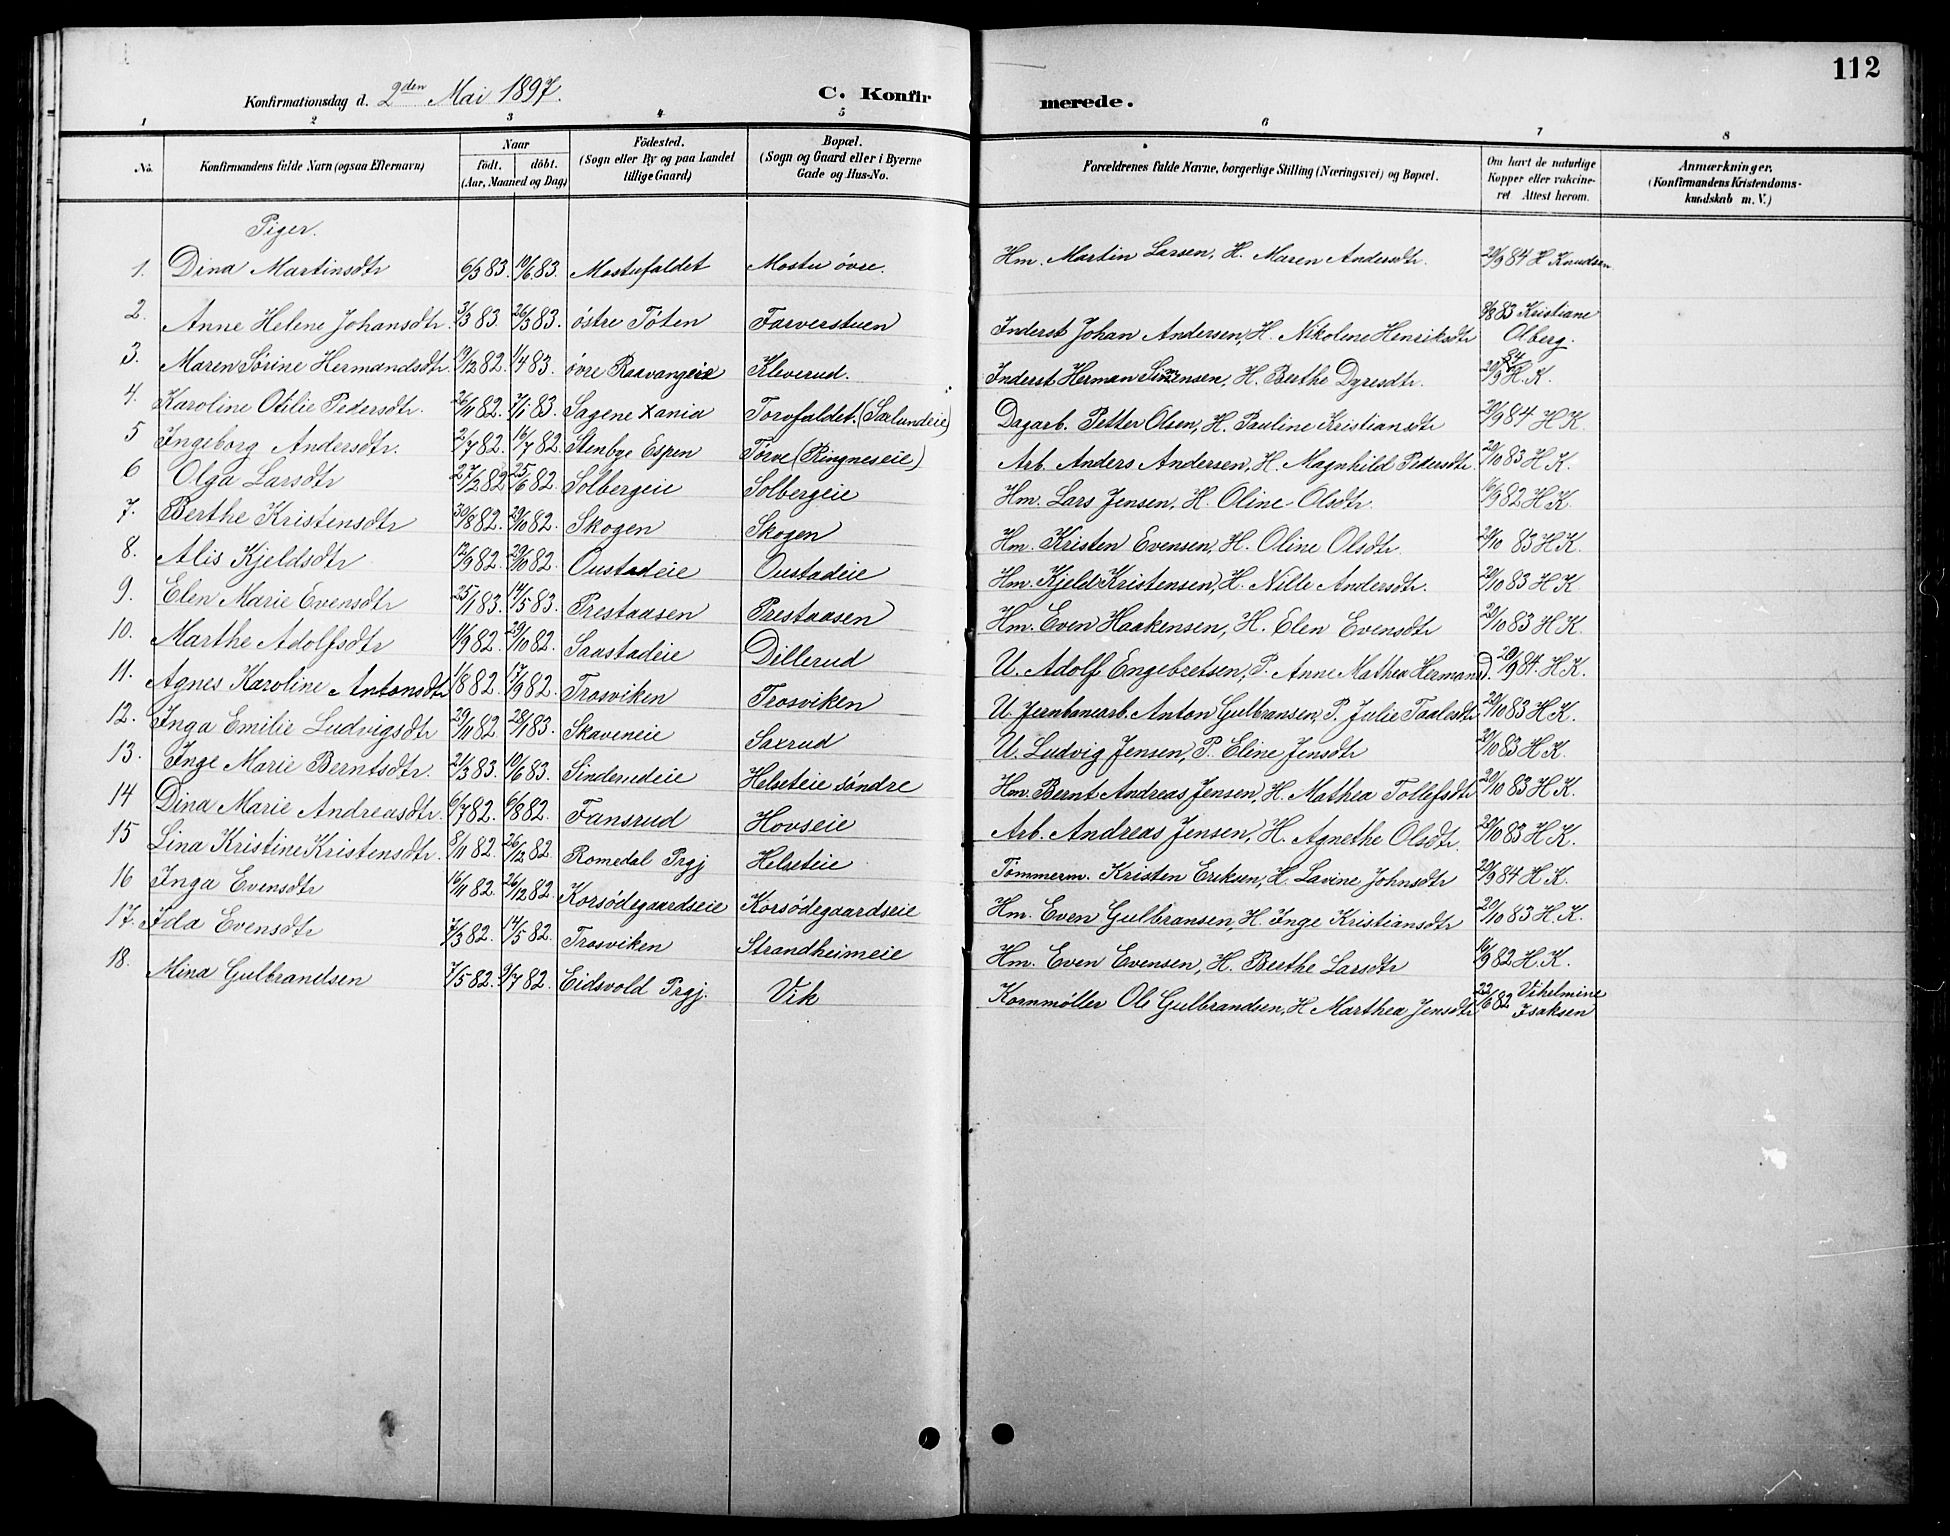 112
Konfirmationsdag d. 2den Mai 1897. C. Konfirmerede.
1 2 3 4 5 6 7 8
No. Konfirmandens fulde Navn (ogsaa Efternavn) Naar födt. döbt. (Aar, Maaned og Dag) Födested. (Sogn eller By og paa Landet tillige Gaard) Bopæl. (Sogn og Gaard eller i Byerne Gade og Hus-No. Forældrenes fulde Navne, borgerlige Stilling (Næringsvei) og Bopæl. Om havt de naturlige Kopper eller vakcineret Attest herom. Anmærkninger. (Konfirmandens Kristendomskundskab m. V.)
Piger.
1. Dina Martinsdtr 6/3 83. 10/6 83. Mostufaldet Mostu øvre. Hm. Martin Larsen, H. Maren Andersdtr. 20/9 84 H Knudsen
2. Anne Helene Johansdtr. 3/3 83. 26/3 83. østre Toten Farverstuen Inderst Johan Andersen, H. Nikoline Henriksdtr 8/8 83 Kristiane Olberg.
3. Maren Sørine Hermandsdtr. 13/12 82. 1/4 83. øvre Raavangeie Kleverud. Inderst Herman Simensen, H. Berthe Dyresdtr. 20/9 84 H. K.
4. Karoline Otilie Pedersdtr. 26/11 82. 7/1 83. Sagene Xania Torvfaldet. (Sælundeie) Dagarb. Petter Olsen, H. Pauline Kristiansdtr 20/9 84 H K.
5 Ingeborg Andersdtr. 2/7 82. 16/7 82. Stenbye Espen Torve (Ringneseie) Arb. Anders Andersen, H. Magnhild Pedersdtr 20/10 83 H K.
6 Olga Larsdtr 27/2 82 25/6 82. Solbergeie Solbergeie Hm. Lars Jensen, H. Oline Olsdtr. 16/9 82 H K.
7. Berthe Kristensdtr 30/8 82. 29/10 82. Skogen Skogen Hm. Kristen Evensen, H. Oline Olsdtr. 20/10 83 H K.
8. Alis Kjeldsdtr 12/9 82. 29/10 82. Oustadeie Oustadeie Hm. Kjeld Kristensen, H. Nille Andersdtr. 20/10 83 H K.
9. Elen Marie Evensdtr 25/1 83. 14/5 83. Prestaasen Prestaasen Hm. Even Haakensen, H. Elen Evensdtr 20/10 83 H K.
10. Marthe Adolfsdtr 11/9 82. 29/10 82. Saastadeie Dillerud U. Adolf Engebretsen, P. Anne Mathea Hermansd. 20/9 84. H K.
11. Agnes Karoline Antonsdtr 1/8 82. 17/9 82. Trosviken Trosviken U. Jernbanearb. Anton Gulbransen, P. Julie Taalesdtr 20/10 83 H K.
12. Inga Emilie Ludvigsdtr 29/11 82 28/1 83. Skaveneie Saxrud U. Ludvig Jensen, P. Eline Jensdtr 20/10 83 H K.
13. Inge Marie Berntsdtr. 21/3 83. 10/6 83. Sindenedeie Helseteie søndre Hm. Bernt Andreas Jensen, H. Mathea Tollefsdtr 20/10 83 H K.
14 Dina Marie Andreasdtr. 6/7 82. 6/8 82. Fansrud Hovseie Arb. Andreas Jensen, H. Agnethe Olsdtr. 20/10 83 H K.
15 Lina Kristine Kristensdtr. 8/11 82. 26/12 82 Romedal Prgj Helseteie Tømmerm. Kristen Eriksen, H. Lavine Johnsdtr 20/9 84 H K.
16 Inga Evensdtr 16/11 82. 26/12 82 Korsødegaardseie Korsødegaardseie Hm. Even Gulbransen, H. Inge Kristiansdtr 20/10 83 H. K.
17. Ida Evensdtr 7/3 82. 14/5 82. Trosviken Strandheimeie Hm. Even Evensen, H. Berthe Larsdtr 16/9 82 H. K.
18. Mina Gulbrandsen 7/5 82. 9/7 82. Eidsvold Prgj. Vik Kornmøller Ole Gulbrandsen, H Marthea Jensdtr 22/6 82 Vihelmine Isaksen